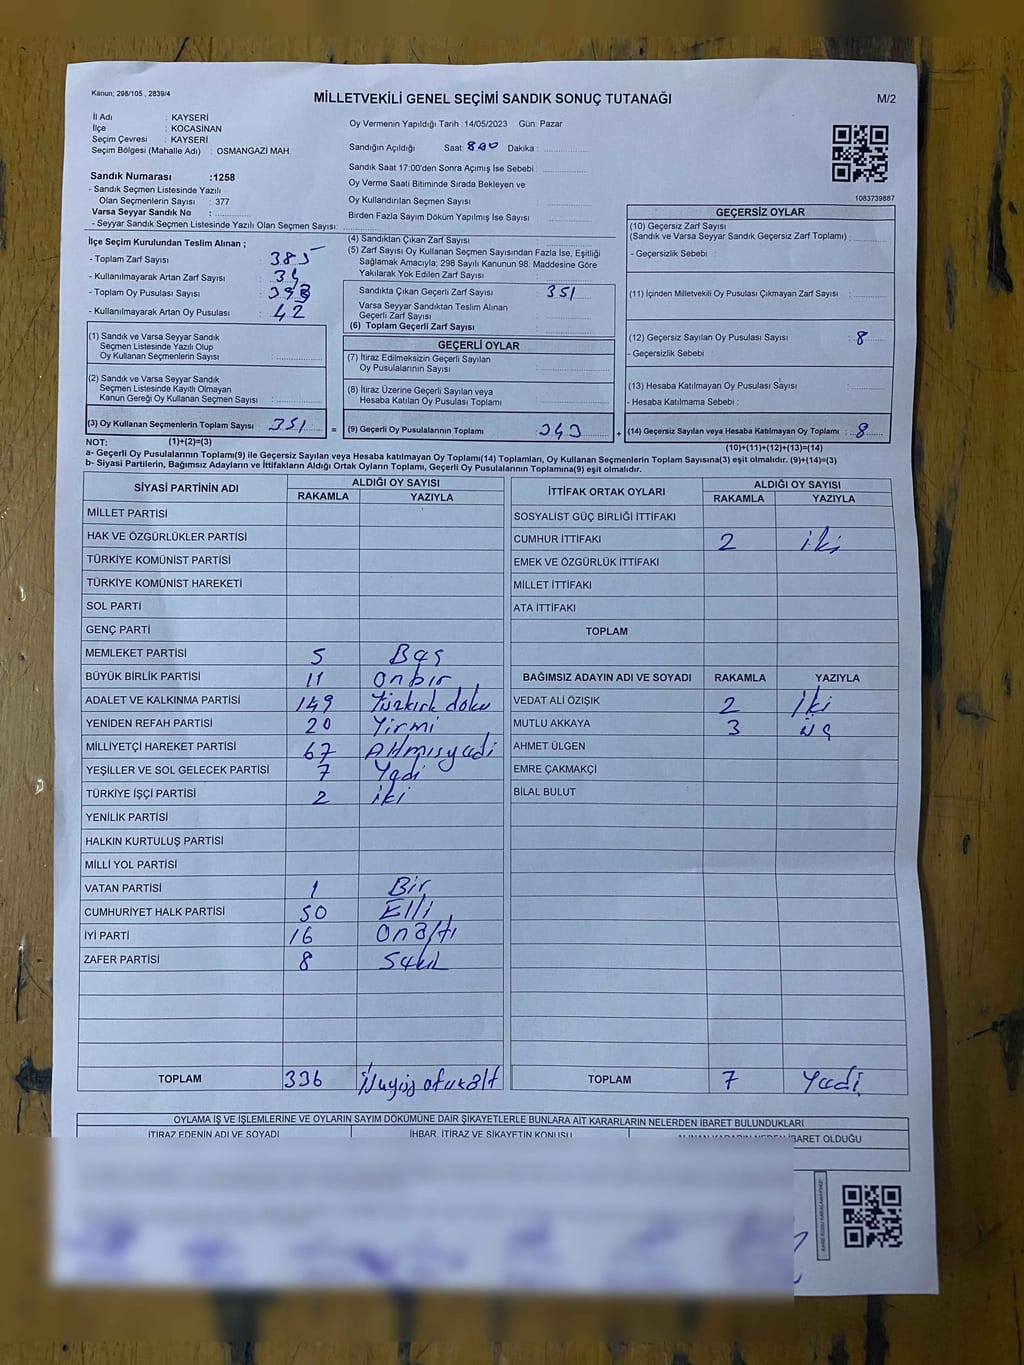 Kanun; 298/105 , 2839/4
MİLLETVEKİLİ GENEL SEÇİMİ SANDIK SONUÇ TUTANAĞI
M/2
İl Adı : KAYSERİ
İlçe : KOCASİNAN
Seçim Çevresi : KAYSERİ
Seçim Bölgesi (Mahalle Adı) : OSMANGAZİ MAH.
Sandık Numarası :1258
- Sandık Seçmen Listesinde Yazılı
Olan Seçmenlerin Sayısı : 377
Varsa Seyyar Sandık No :
- Seyyar Sandık Seçmen Listesinde Yazılı Olan Seçmen Sayısı:
Oy Vermenin Yapıldığı Tarih :14/05/2023 Gün: Pazar
Sandığın Açıldığı Saat: 800 Dakika :
Sandık Saat 17:00'den Sonra Açımış İse Sebebi :
Oy Verme Saati Bitiminde Sırada Bekleyen ve
Oy Kullandırılan Seçmen Sayısı :
Birden Fazla Sayım Döküm Yapılmış İse Sayısı :
1083739887
İlçe Seçim Kurulundan Teslim Alınan ;
- Toplam Zarf Sayısı : 385
- Kullanılmayarak Artan Zarf Sayısı : 34
- Toplam Oy Pusulası Sayısı : 393
- Kullanılmayarak Artan Oy Pusulası : 42
(1) Sandık ve Varsa Seyyar Sandık
Seçmen Listesinde Yazılı Olup
Oy Kullanan Seçmenlerin Sayısı :
(2) Sandık ve Varsa Seyyar Sandık
Seçmen Listesinde Kayıtlı Olmayan
Kanun Gereği Oy Kullanan Seçmen Sayısı :
(3) Oy Kullanan Seçmenlerin Toplam Sayısı : 351
(4) Sandıktan Çıkan Zarf Sayısı :
(5) Zarf Sayısı Oy Kullanan Seçmen Sayısından Fazla İse, Eşitliği
Sağlamak Amacıyla; 298 Sayılı Kanunun 98. Maddesine Göre
Yakılarak Yok Edilen Zarf Sayısı :
Sandıkta Çıkan Geçerli Zarf Sayısı : 351
Varsa Seyyar Sandıktan Teslim Alınan
Geçerli Zarf Sayısı :
(6) Toplam Geçerli Zarf Sayısı :
GEÇERLİ OYLAR
(7) İtiraz Edilmeksizin Geçerli Sayılan
Oy Pusulalarının Sayısı :
(8) İtiraz Üzerine Geçerli Sayılan veya
Hesaba Katılan Oy Pusulası Toplamı :
= (9) Geçerli Oy Pusulalarının Toplamı : 343
GEÇERSİZ OYLAR
(10) Geçersiz Zarf Sayısı
(Sandık ve Varsa Seyyar Sandık Geçersiz Zarf Toplamı) :
- Geçersizlik Sebebi :
(11) İçinden Milletvekili Oy Pusulası Çıkmayan Zarf Sayısı :
(12) Geçersiz Sayılan Oy Pusulası Sayısı : 8
- Geçersizlik Sebebi
(13) Hesaba Katılmayan Oy Pusulası Sayısı :
- Hesaba Katılmama Sebebi :
+ (14) Geçersiz Sayılan veya Hesaba Katılmayan Oy Toplamı : 8
NOT: (1)+(2)=(3)
(10)+(11)+(12)+(13)=(14)
a- Geçerli Oy Pusulalarının Toplamı(9) ile Geçersiz Sayılan veya Hesaba katılmayan Oy Toplamı(14) Toplamları, Oy Kullanan Seçmenlerin Toplam Sayısına(3) eşit olmalıdır. (9)+(14)=(3)
b- Siyasi Partilerin, Bağımsız Adayların ve İttifakların Aldığı Ortak Oyların Toplamı, Geçerli Oy Pusulalarının Toplamına(9) eşit olmalıdır.
SİYASİ PARTİNİN ADI ALDIĞI OY SAYISI
RAKAMLA YAZIYLA
MİLLET PARTİSİ
HAK VE ÖZGÜRLÜKLER PARTİSİ
TÜRKİYE KOMÜNİST PARTİSİ
TÜRKİYE KOMÜNİST HAREKETİ
SOL PARTİ
GENÇ PARTİ
MEMLEKET PARTİSİ 5 Beş
BÜYÜK BİRLİK PARTİSİ 11 Onbir
ADALET VE KALKINMA PARTİSİ 149 Yüzkırk doku
YENİDEN REFAH PARTİSİ 20 Yirmi
MİLLİYETÇİ HAREKET PARTİSİ 67 Altmışyedi
YEŞİLLER VE SOL GELECEK PARTİSİ 7 Yedi
TÜRKİYE İŞÇİ PARTİSİ 2 iki
YENİLİK PARTİSİ
HALKIN KURTULUŞ PARTİSİ
MİLLİ YOL PARTİSİ
VATAN PARTİSİ 1 Bir
CUMHURİYET HALK PARTİSİ 50 Elli
İYİ PARTİ 16 Onaltı
ZAFER PARTİSİ 8 Sekiz
TOPLAM 336 üçyüz otuzaltı
İTTİFAK ORTAK OYLARI ALDIĞI OY SAYISI
RAKAMLA YAZIYLA
SOSYALIST GÜÇ BİRLİĞİ İTTİFAKI
CUMHUR İTTİFAKI 2 iki
EMEK VE ÖZGÜRLÜK İTTİFAKI
MİLLET İTTİFAKI
ATA İTTİFAKI
TOPLAM
BAĞIMSIZ ADAYIN ADI VE SOYADI RAKAMLA YAZIYLA
VEDAT ALİ ÖZIŞIK 2 İki
MUTLU AKKAYA 3 üç
AHMET ÜLGEN
EMRE ÇAKMAKÇİ
BİLAL BULUT
TOPLAM 7 Yedi
OYLAMA İŞ VE İŞLEMLERİNE VE OYLARIN SAYIM DÖKÜMÜNE DAİR ŞİKAYETLERLE BUNLARA AİT KARARLARIN NELERDEN İBARET BULUNDUKLARI
İTİRAZ EDENİN ADI VE SOYADI İHBAR, İTİRAZ VE ŞİKAYETİN KONUSU ALINAN KARARIN NEDEN İBARET OLDUĞU